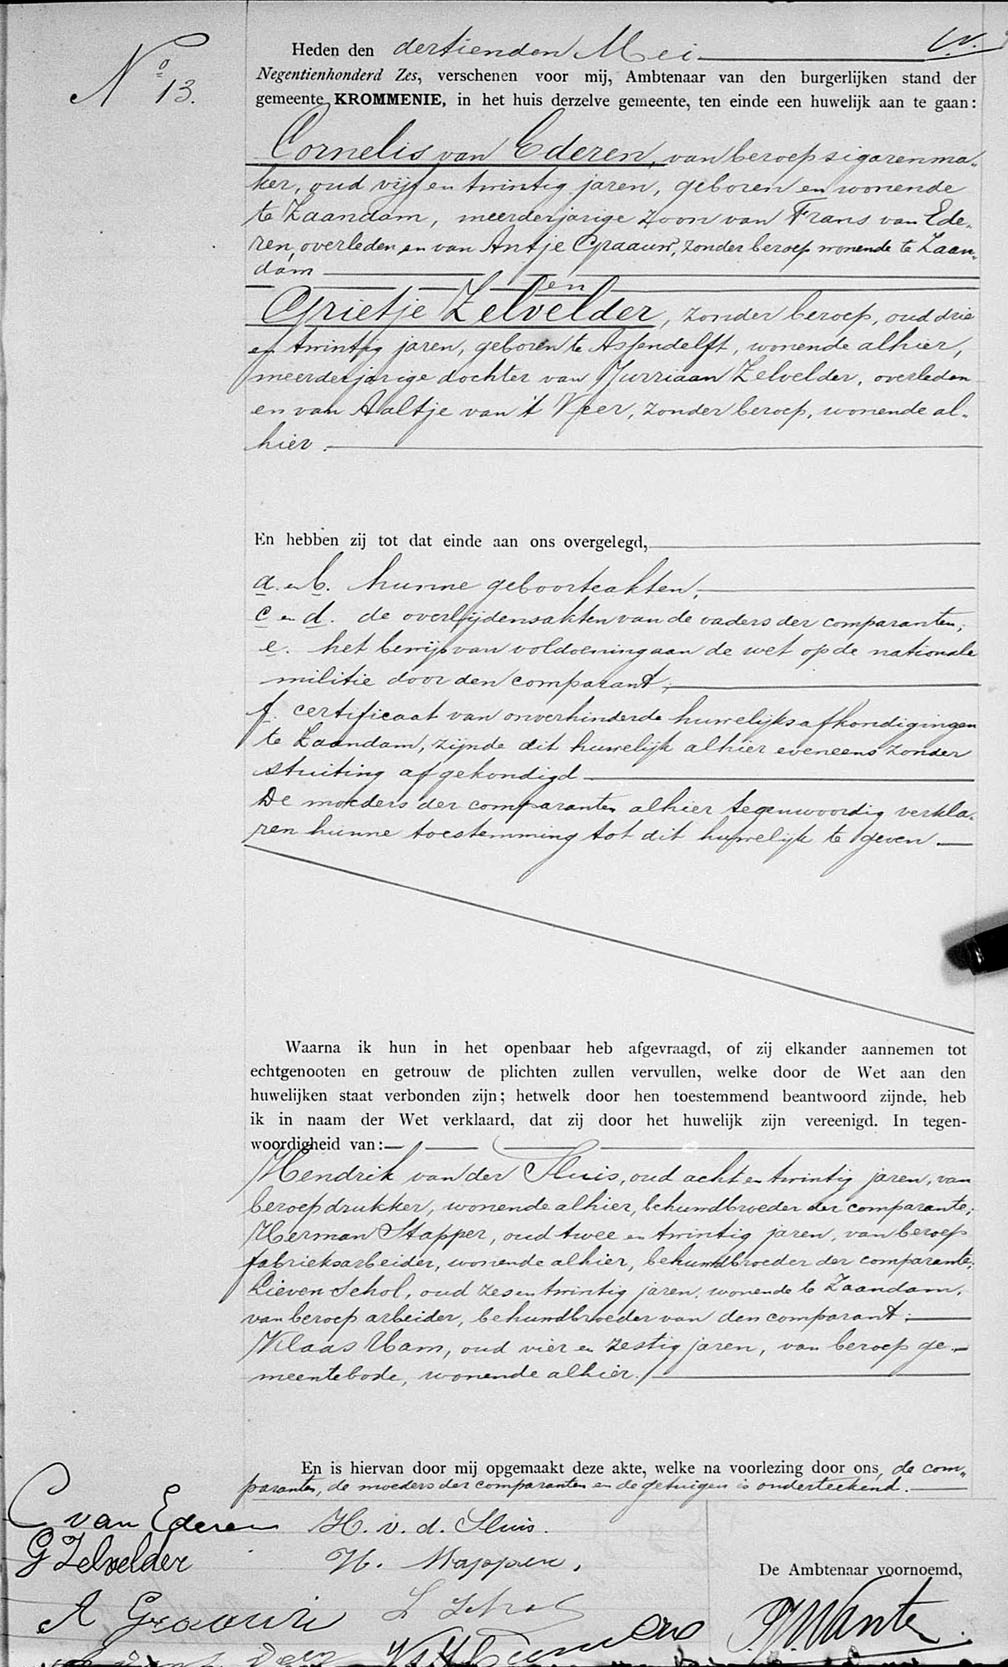 No 13.
Heden den dertienden Mei
Negentienhonderd Zes, verschenen voor mij, Ambtenaar van den burgerlijken stand der
gemeente KROMMENIE, in het huis derzelve gemeente, ten einde een huwelijk aan te gaan:
Cornelis van Ederen, van beroep sigarenma-
ker, oud vijf en twintig jaren, geboren en wonende
te Zaandam, meerderjarige zoon van Frans van Ede-
ren, overleden en van Antje Graauw, zonder beroep wonende te Zaan-
dam
en
Grietje Zelvelder, zonder beroep, oud drie
en twintig jaren, geboren te Assendelft, wonende alhier,
meerderjarige dochter van Jurriaan Zelvelder, overleden
en van Aaltje van 't Veer, zonder beroep, wonende al-
hier.
En hebben zij tot dat einde aan ons overgelegd,
a. en b. hunne geboorteakten;
c en d. de overlijdensakten van de vaders der comparanten;
e. het bewijs van voldoening aan de wet op de nationale
militie door den comparant;
f. certificaat van onverhinderde huwelijksafkondigingen
te Zaandam, zijnde dit huwelijk alhier eveneens zonder
stuiting afgekondigd
De moeders der comparanten alhier tegenwoordig verkla-
ren hunne toestemming tot dit huwelijk te geven
Waarna ik hun in het openbaar heb afgevraagd, of zij elkander aannemen tot
echtgenooten en getrouw de plichten zullen vervullen, welke door de Wet aan den
huwelijken staat verbonden zijn; hetwelk door hen toestemmend beantwoord zijnde, heb
ik in naam der Wet verklaard, dat zij door het huwelijk zijn vereenigd. In tegen-
woordigheid van:
Hendrik van der Sluis, oud acht en twintig jaren, van
beroep drukker, wonende alhier, behuwdbroeder der comparante;
Herman Stapper, oud twee en twintig jaren, van beroep
fabrieksarbeider, wonende alhier, behuwdbroeder der comparante;
Lieven Schol, oud zes en twintig jaren, wonende te Zaandam,
van beroep arbeider, behuwdbroeder van den comparant;
Klaas Ham, oud vier en zestig jaren, van beroep ge-
meentebode, wonende alhier.
En is hiervan door mij opgemaakt deze akte, welke na voorlezing door ons, de com-
paranten, de moeders der comparanten en de getuigen is onderteekend.
C van Ederen H. v. d. Sluis.
G Zelvelder
De Ambtenaar voornoemd,
A Graauw L Schol